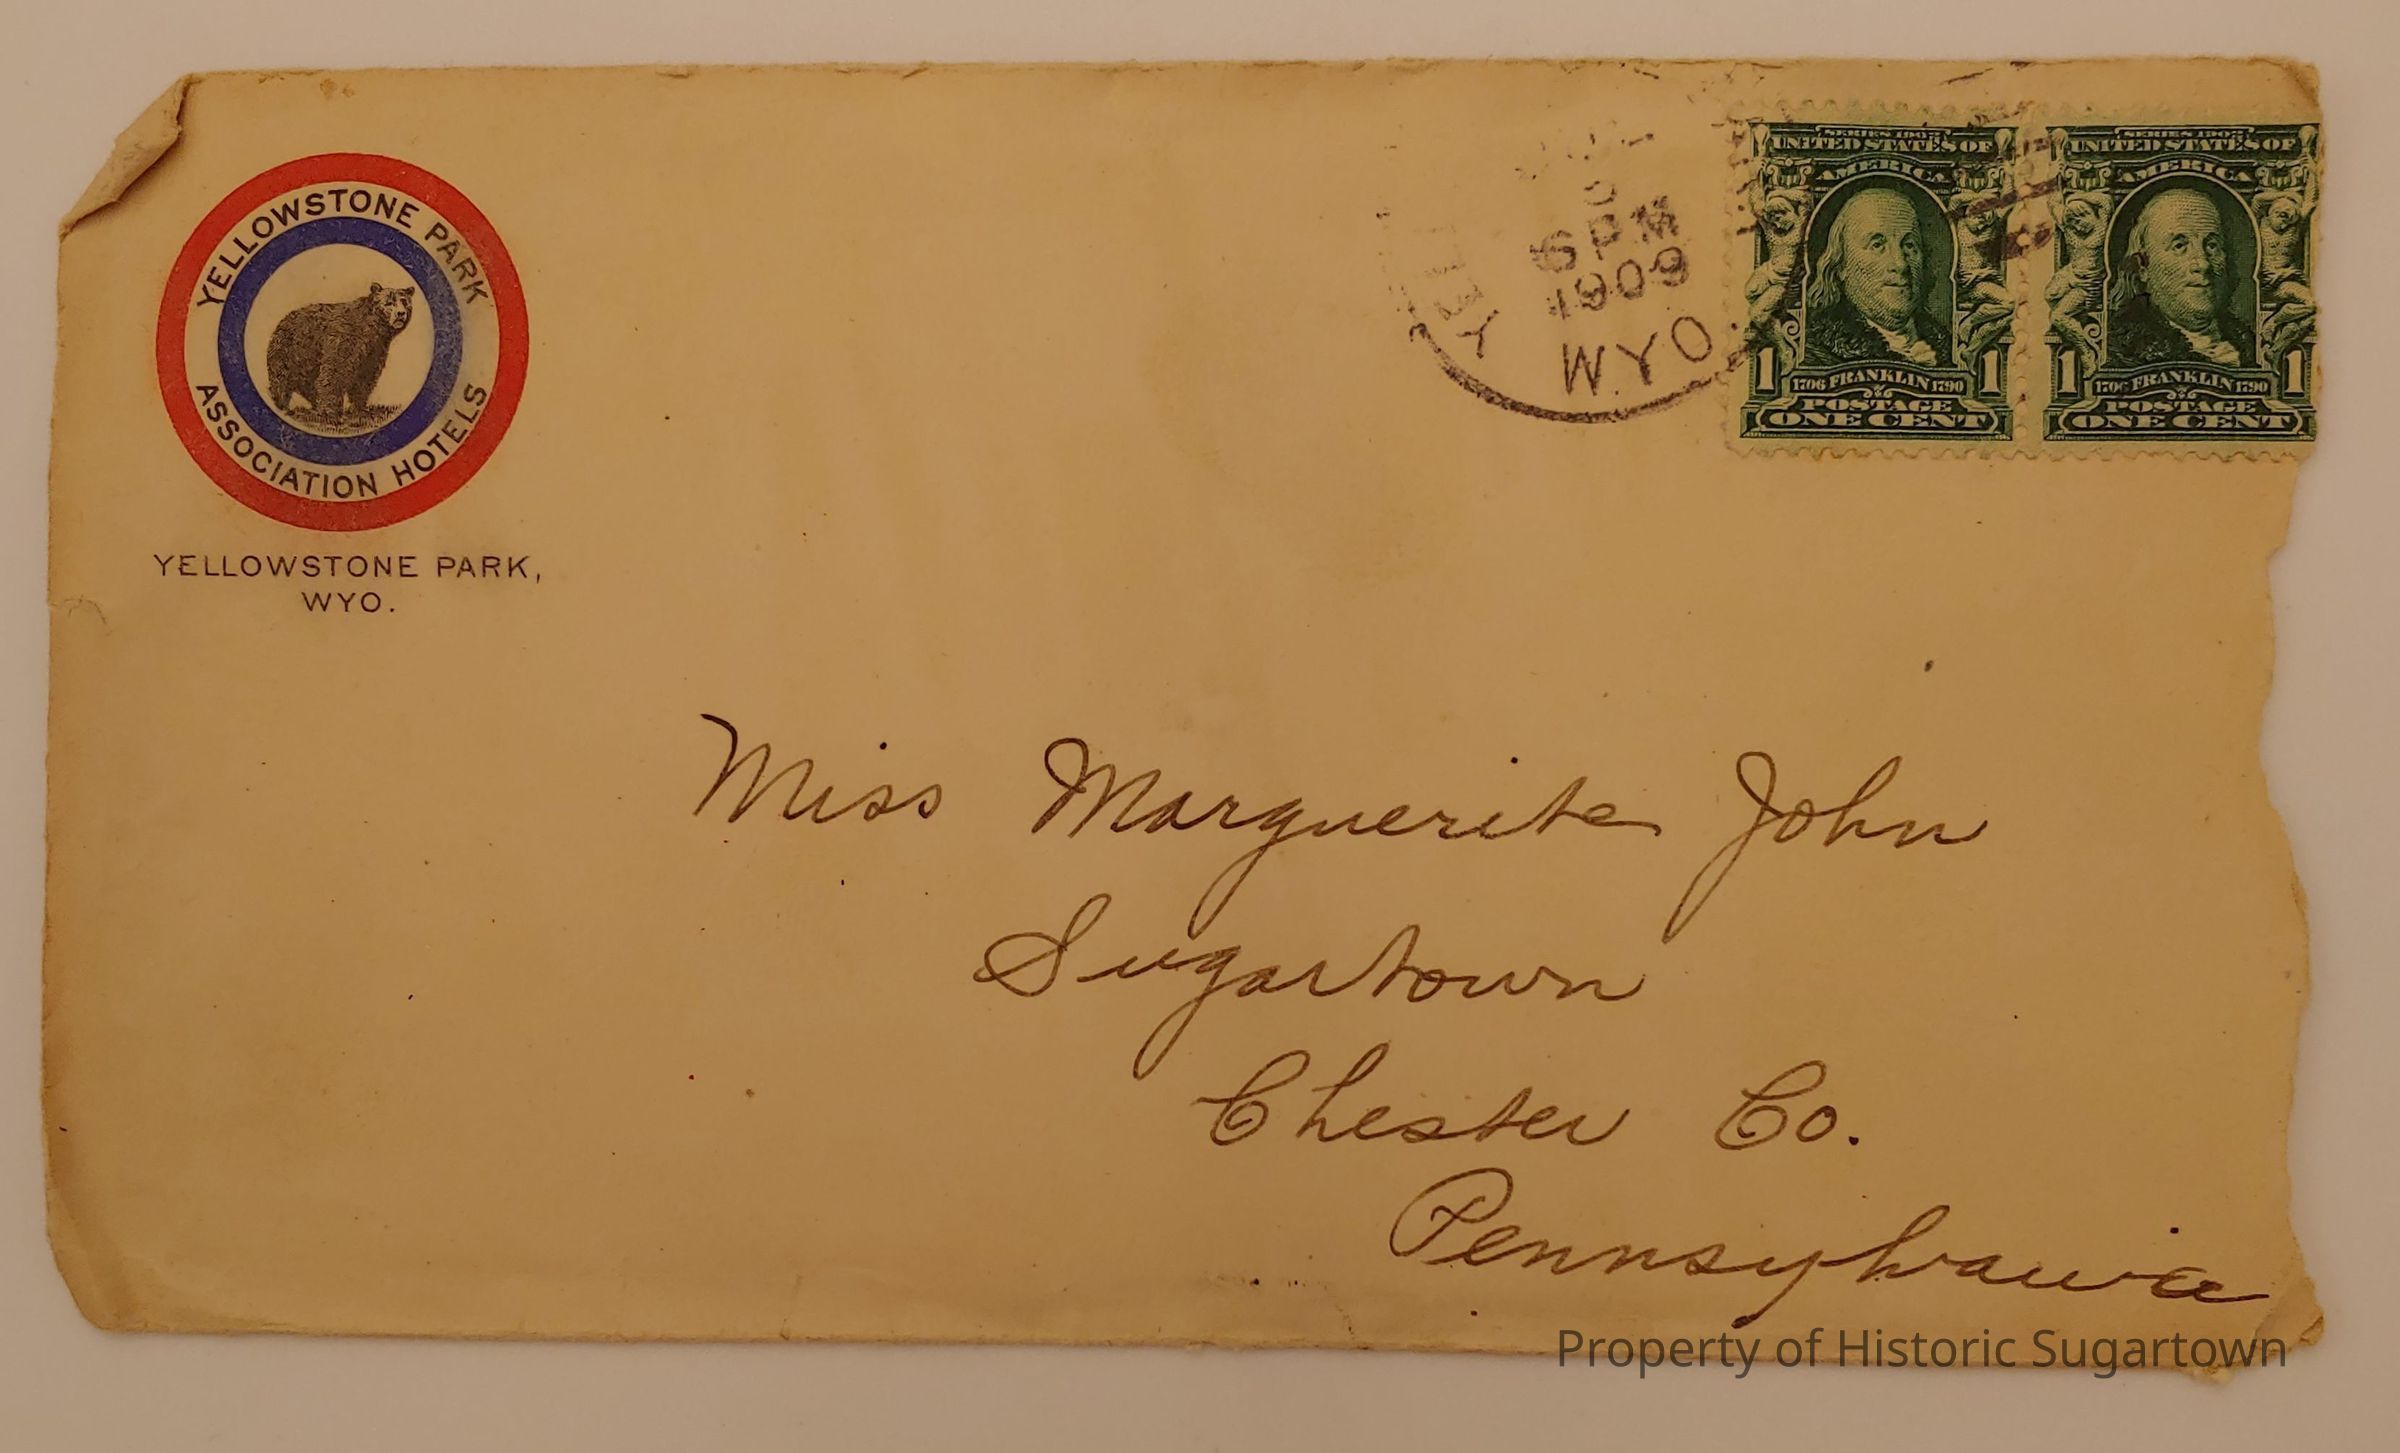 YELLOWSTONE PARK
ASSOCIATION HOTELS
YELLOWSTONE PARK,
WYO.
6 PM
1909
WYO.
SERIES 1902
UNITED STATES OF
AMERICA
1 1706 FRANKLIN 1790 1
POSTAGE
ONE CENT
SERIES 1902
UNITED STATES OF
AMERICA
1 1706 FRANKLIN 1790 1
POSTAGE
ONE CENT
Miss Marguerite John
Sugartown
Chester Co.
Pennsylvania
Property of Historic Sugartown